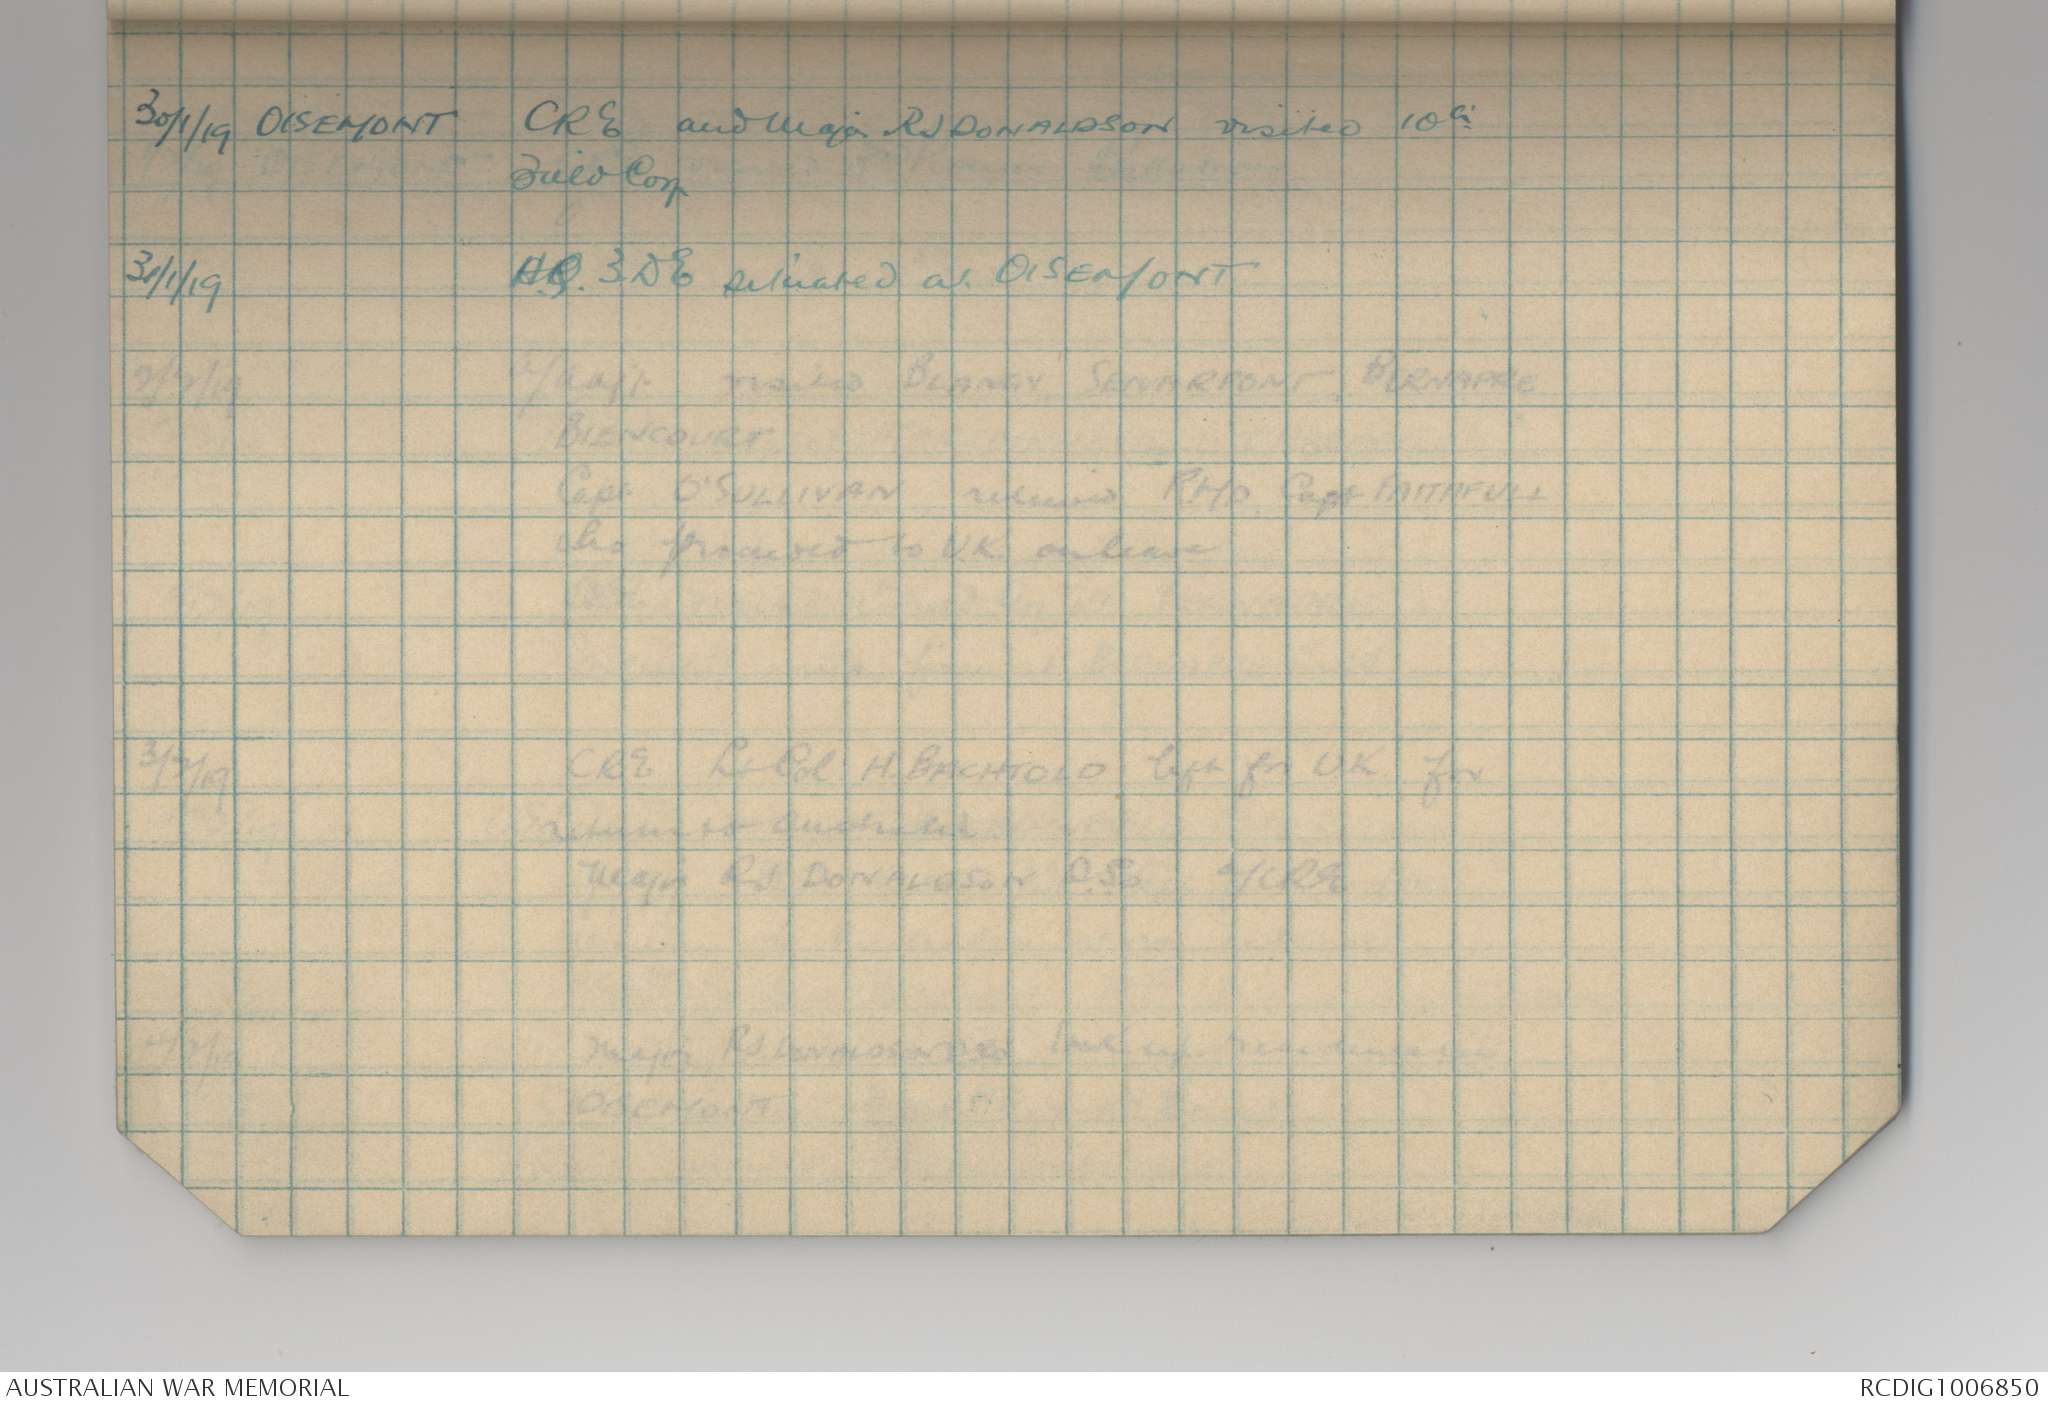 30/1/19 OISEMONT CRE and Major RJ DONALDSON visited 10th
Field Coy
31/1/19 H.Q. 3 DE situated at OISEMONT
2/2/19 A/Adjt visited BLANGY SENARPONT, BERNAPRE
BIENCOURT
Capt O'SULLIVAN relieved RMO Capt FAITHFULL
who proceeded to U.K. on leave
3/2/19 CRE Lt Col H. BACHTOLD left for U.K. for
return to Australia
Major RJ DONALDSON D.S.O. a/CRE
Major RJ. DONALDSON DSO took up residence in
OISEMONT
AUSTRALIAN WAR MEMORIAL
RCDIG1006850